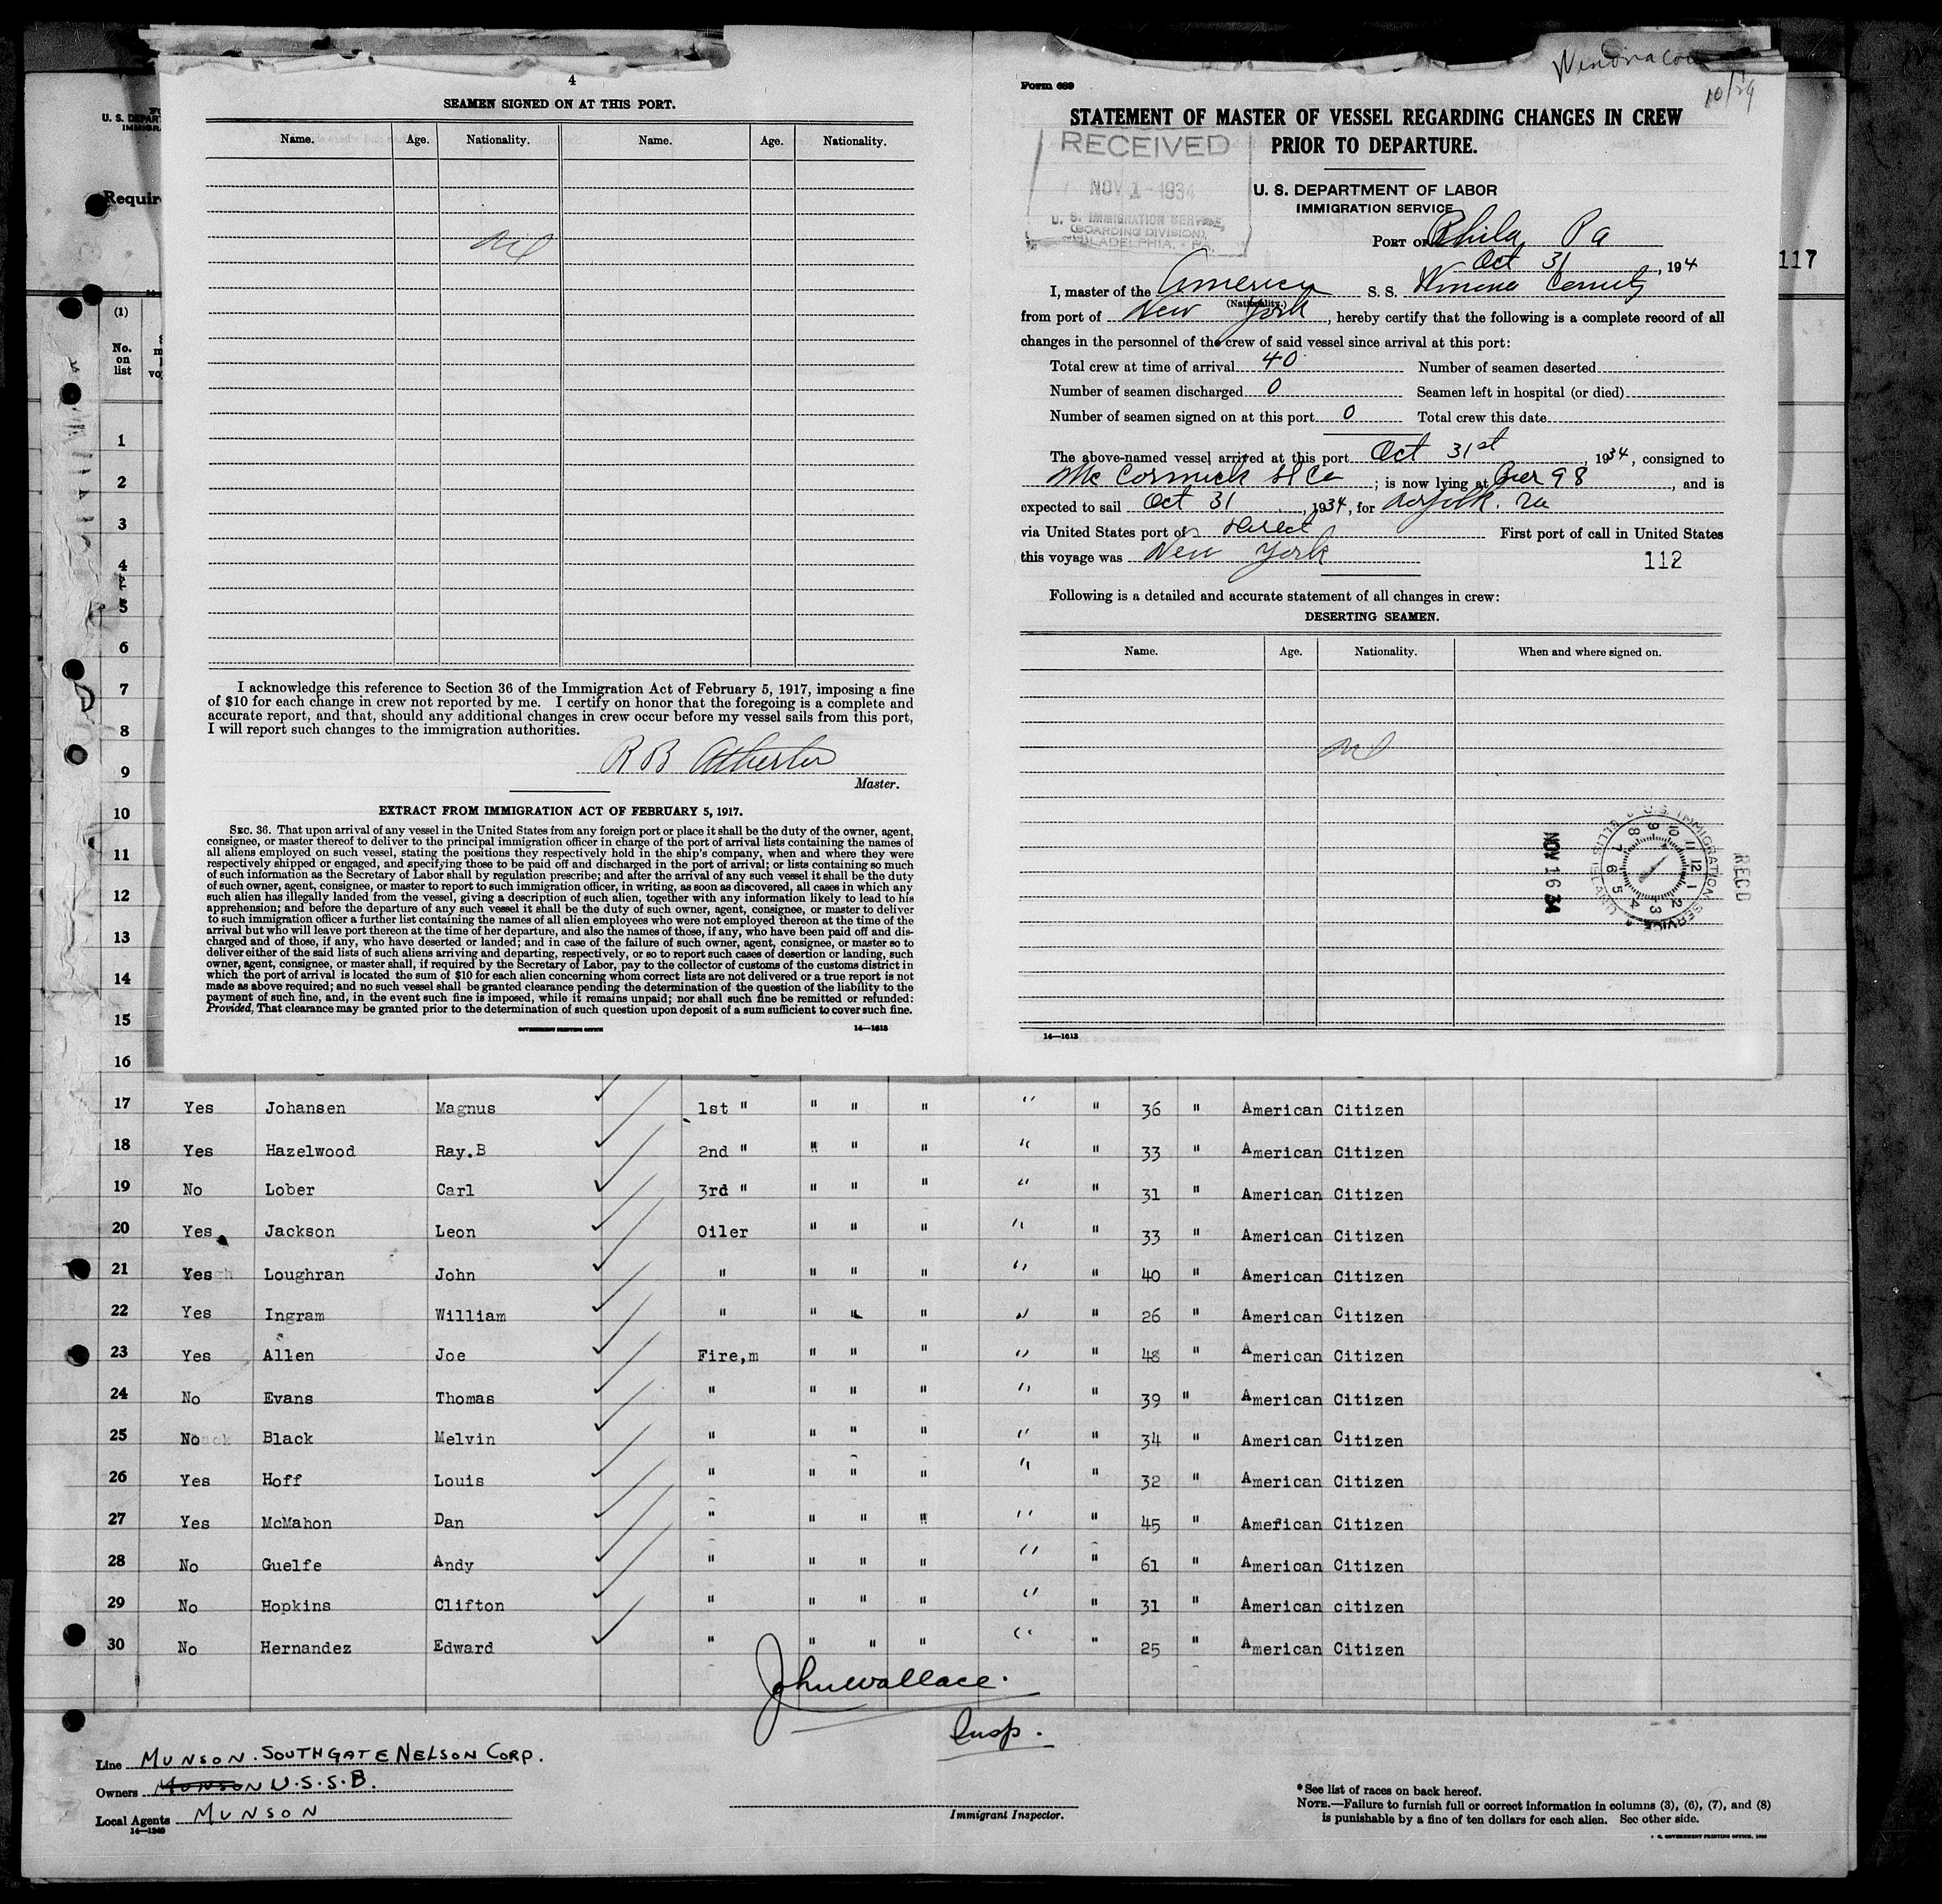 4
SEAMEN SIGNED ON AT THIS PORT.
Name. Age. Nationality. Name. Age. Nationality.
nil
I acknowledge this reference to Section 36 of the Immigration Act of February 5, 1917, imposing a fine
of $10 for each change in crew not reported by me. I certify on honor that the foregoing is a complete and
accurate report, and that, should any additional changes in crew occur before my vessel sails from this port,
I will report such changes to the immigration authorities.
R B Atherton
Master.
EXTRACT FROM IMMIGRATION ACT OF FEBRUARY 5, 1917.
SEC. 36. That upon arrival of any vessel in the United States from any foreign port or place it shall be the duty of the owner, agent,
consignee, or master thereof to deliver to the principal immigration officer in charge of the port of arrival lists containing the names of
all aliens employed on such vessel, stating the positions they respectively hold in the ship's company, when and where they were
respectively shipped or engaged, and specifying those to be paid off and discharged in the port of arrival; or lists containing so much
of such information as the Secretary of Labor shall by regulation prescribe; and after the arrival of any such vessel it shall be the duty
of such owner, agent, consignee, or master to report to such immigration officer, in writing, as soon as discovered, all cases in which any
such alien has illegally landed from the vessel, giving a description of such alien, together with any information likely to lead to his
apprehension; and before the departure of any such vessel it shall be the duty of such owner, agent, consignee, or master to deliver
to such immigration officer a further list containing the names of all alien employees who were not employed thereon at the time of the
arrival but who will leave port thereon at the time of her departure, and also the names of those, if any, who have been paid off and dis-
charged and of those, if any, who have deserted or landed; and in case of the failure of such owner, agent, consignee, or master so to
deliver either of the said lists of such aliens arriving and departing, respectively, or so to report such cases of desertion or landing, such
owner, agent, consignee, or master shall, if required by the Secretary of Labor, pay to the collector of customs of the customs district in
which the port of arrival is located the sum of $10 for each alien concerning whom correct lists are not delivered or a true report is not
made as above required; and no such vessel shall be granted clearance pending the determination of the question of the liability to the
payment of such fine, and, in the event such fine is imposed, while it remains unpaid; nor shall such fine be remitted or refunded:
Provided, That clearance may be granted prior to the determination of such question upon deposit of a sum sufficient to cover such fine.
GOVERNMENT PRINTING OFFICE 14—1613
10/29
Form 689
STATEMENT OF MASTER OF VESSEL REGARDING CHANGES IN CREW
PRIOR TO DEPARTURE.
RECEIVED
NOV 1 - 1934
U. S. IMMIGRATION SERVICE,
(BOARDING DIVISION),
PHILADELPHIA, - PA.
U. S. DEPARTMENT OF LABOR
IMMIGRATION SERVICE
PORT OF Phila, Pa
Oct 31, 194
I, master of the America S. S. Winona County
(Nationality.)
from port of New York, hereby certify that the following is a complete record of all
changes in the personnel of the crew of said vessel since arrival at this port:
Total crew at time of arrival 40 Number of seamen deserted
Number of seamen discharged 0 Seamen left in hospital (or died)
Number of seamen signed on at this port 0 Total crew this date
The above-named vessel arrived at this port Oct 31st, 1934, consigned to
Mc Cormick SS Co; is now lying at Pier 98, and is
expected to sail Oct 31, 1934, for Norfolk. Va
via United States port of Direct First port of call in United States
this voyage was New York
112
Following is a detailed and accurate statement of all changes in crew:
DESERTING SEAMEN.
Name. Age. Nationality. When and where signed on.
nil
NOV 1 6 34
U. S. IMMIGRATION SERVICE ELLIS ISLAND
REC'D
14—1613
117
Requir
(1)
No.
on
list
1
2
3
4
5
6
7
8
9
10
11
12
13
14
15
16
17 Yes Johansen Magnus 1st " " " " " " 36 " American Citizen
18 Yes Hazelwood Ray.B 2nd " " " " " " 33 " American Citizen
19 No Lober Carl 3rd " " " " " " 31 " American Citizen
20 Yes Jackson Leon Oiler " " " " " 33 " American Citizen
21 Yes Loughran John " " " " " " 40 " American Citizen
22 Yes Ingram William " " " " " " 26 " American Citizen
23 Yes Allen Joe Fire,m " " " " " 48 " American Citizen
24 No Evans Thomas " " " " " " 39 " American Citizen
25 No Black Melvin " " " " " " 34 " American Citizen
26 Yes Hoff Louis " " " " " " 32 " American Citizen
27 Yes McMahon Dan " " " " " " 45 " American Citizen
28 No Guelfe Andy " " " " " " 61 " American Citizen
29 No Hopkins Clifton " " " " " " 31 " American citizen
30 No Hernandez Edward " " " " " " 25 " American Citizen
John Wallace.
Insp.
Line MUNSON. SOUTHGATE NELSON CORP.
Owners MUNSON U.S.S.B.
Local Agents MUNSON
14—1240
Immigrant Inspector.
* See list of races on back hereof.
NOTE.—Failure to furnish full or correct information in columns (3), (6), (7), and (8)
is punishable by a fine of ten dollars for each alien. See other side.